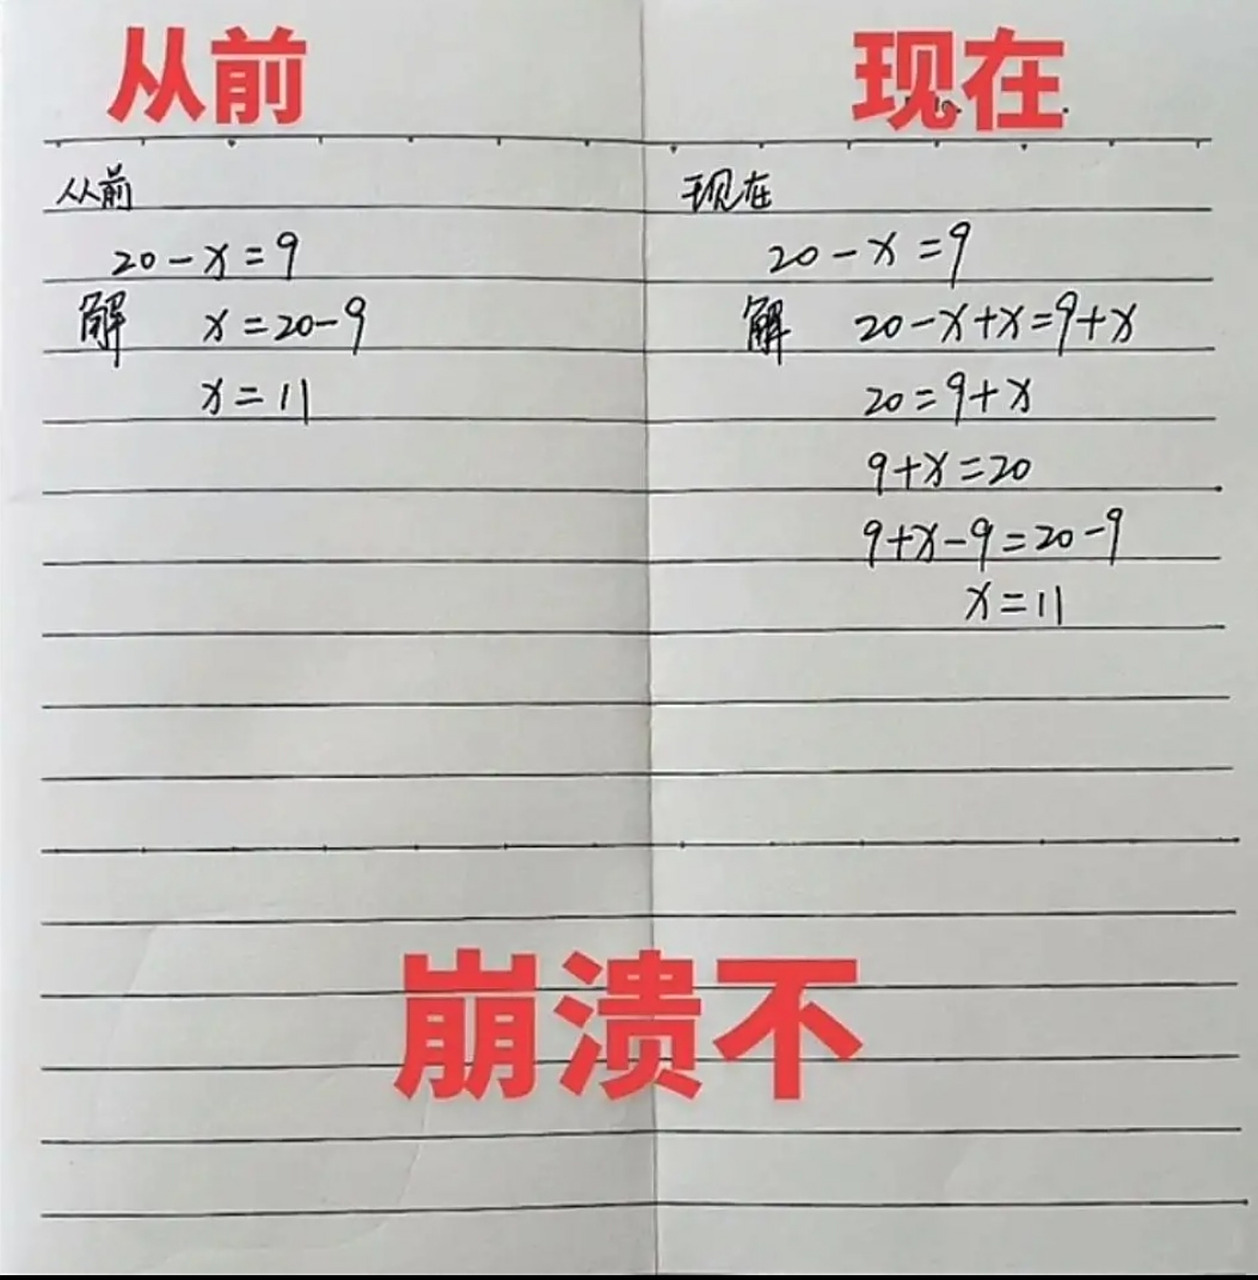 从前
现在
从前
20-x=9
解 x=20-9
x=11
现在
20-x=9
解 20-x+x=9+x
20=9+x
9+x=20
9+x-9=20-9
x=11
崩溃不